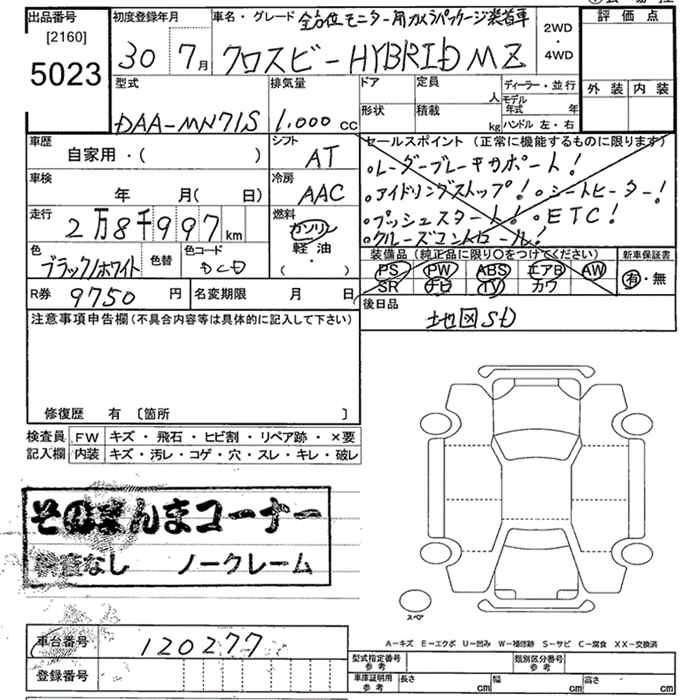 出品番号
[2160]
5023
初度登録年月
30 7月
車名・グレード 全方位モニター用カメラパッケージ装着車
クロスビー HYBRID MZ
2WD
・
4WD
評価点
外装 内装
型式
DAA-MN71S
排気量
1,000 cc
ドア
定員
人
形状
積載
kg
ディーラー・並行
モデル年式 年
ハンドル 左・右
車歴
自家用・( )
シフト
AT
車検
年 月( 日)
冷房
AAC
走行
2万8千997km
燃料
ガソリン
軽油
・
( )
色
ブラック/ホワイト
色替
色コード
DCD
R券 9750 円
名変期限 月 日
セールスポイント (正常に機能するものに限ります)
・レーダーブレーキサポート!
・アイドリングストップ! ・シートヒーター!
・プッシュスタート! ・ETC!
・クルーズコントロール!
装備品(純正品に限り○をつけてください)
PS PW ABS エアB AW
SR ナビ TV カワ
新車保証書
有・無
後日品
地図SD
注意事項申告欄(不具合内容等は具体的に記入して下さい)
修復歴 有 [箇所 ]
検査員 FW キズ・飛石・ヒビ割・リペア跡・×要
記入欄 内装 キズ・汚レ・コゲ・穴・スレ・キレ・破レ
そのまんまコーナー
検査なし ノークレーム
スペア
車台番号 120277
登録番号
A−キズ E−エクボ U−凹み W−補修跡 S−サビ C−腐食 XX−交換済
型式指定番号 参考
類別区分番号 参考
車庫証明用 参考 長さ cm 幅 cm 高さ cm